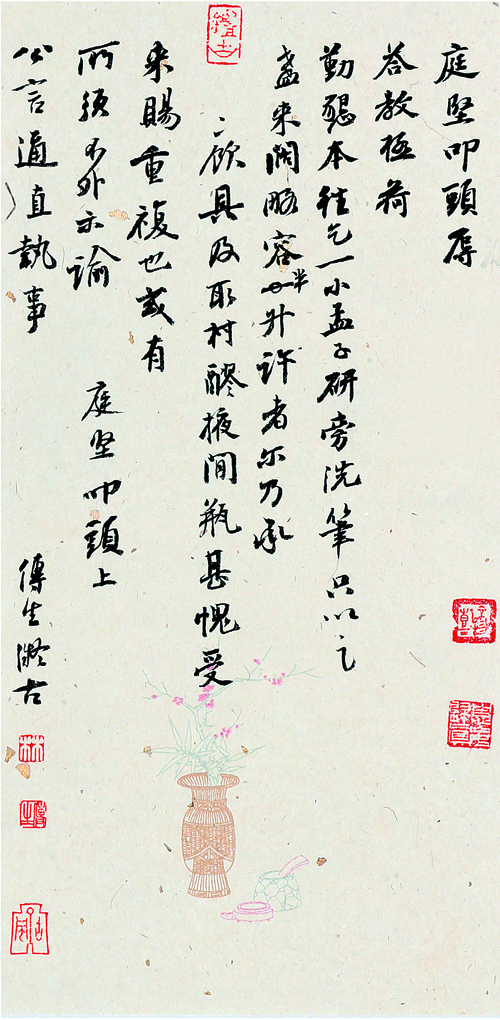 庭堅叩頭辱
荅教極荷
勤懇本往乞一小盂子研旁洗筆只以
盞来闊略容半升許者尔乃承
飲具及取村醪掖間瓶甚愧受
来賜重複也或有
所須不外示諭
庭堅叩頭上
公言通直執事
傳生擬古
林
傳生